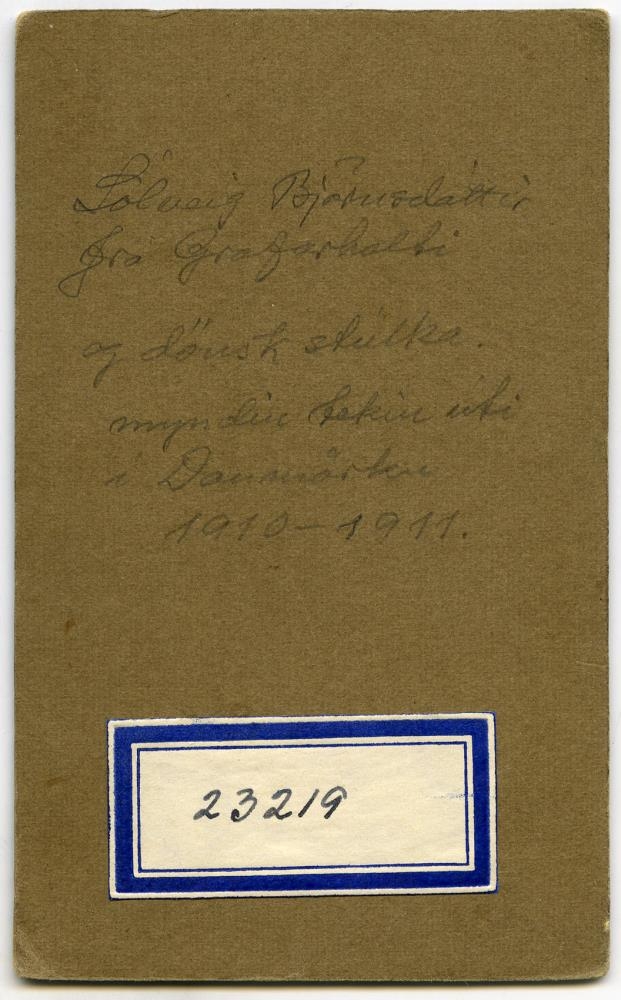 Sólveig Björnsdóttir
frá Grafarholti
og dönsk stúlka.
myndin tekin úti
i Danmörku
1910-1911.
23219